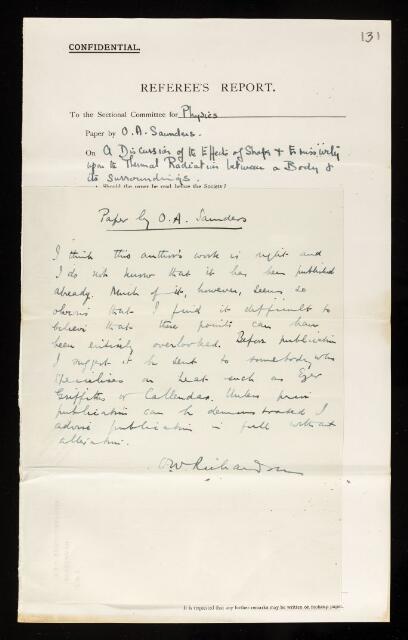 131
CONFIDENTIAL.
REFEREE'S REPORT.
To the Sectional Committee for Physics
Paper by O. A. Saunders.
On A Discussion of the Effects of Shape & Emissivity
upon the Thermal Radiation between a Body &
its Surroundings.
1. Should the paper be read before the Society?
Paper by O. A. Saunders
I think this author's work is right and
I do not know that it has been published
already. Much of it, however, seems so
obvious that I find it difficult to
believe that these points can have
been entirely overlooked. Before publication
I suggest it be sent to somebody who
specialises on heat such as Ezer
Griffiths or Callendar. Unless prior
publication can be demonstrated I
advise publication in full without
alteration.
O W Richardson
It is requested that any further remarks may be written on foolscap paper.